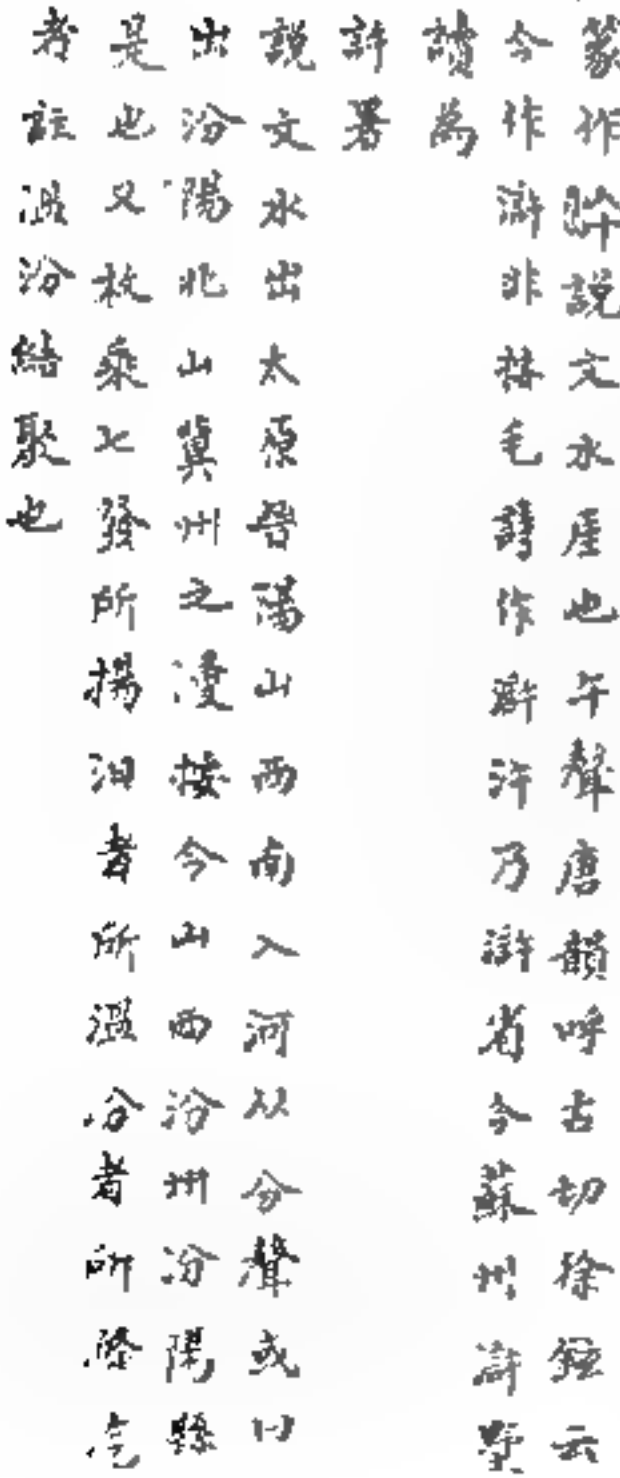 篆作汻説文水厓也午聲唐韻呼古切徐鉉云
今作滸非按毛詩作滸汻乃滸省今蘇州滸墅
讀為
許署
説文水出太原晉陽山西南入河从分聲或曰
出汾陽北山冀州之浸按今山西汾州汾陽縣
是也又枚乘七發所揚汩者所温汾者所滌汔
者註温汾結聚也